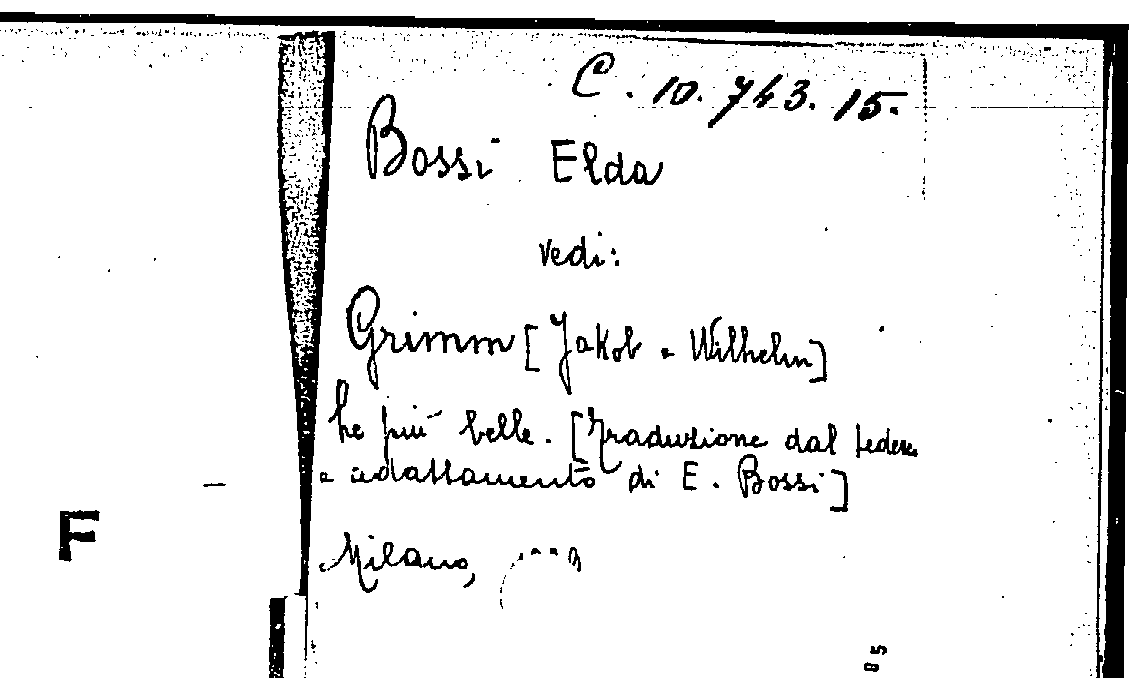 C. 10. 743. 15.
Bossi Elda
vedi:
Grimm [Jakob e Wilhelm]
Le più belle. [Traduzione dal tedesc
e adattamento di E. Bossi]
Milano,
F